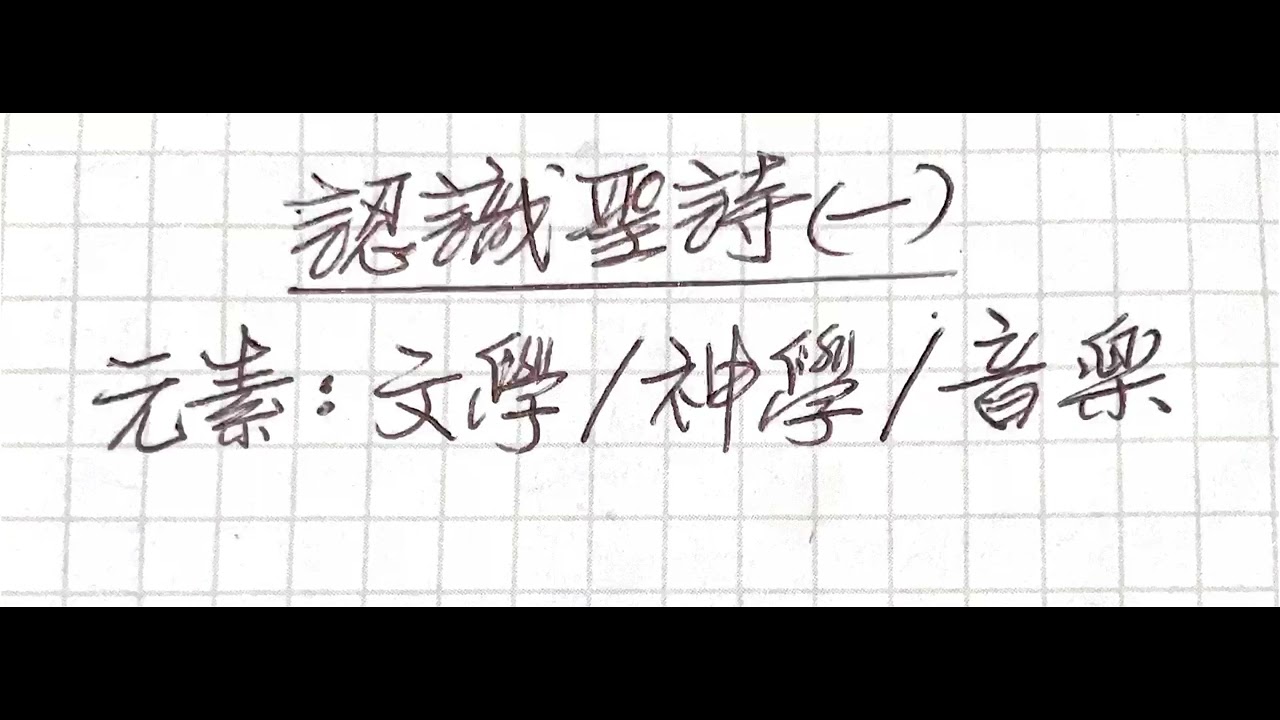 認識聖詩(一)
元素:文學/神學/音樂